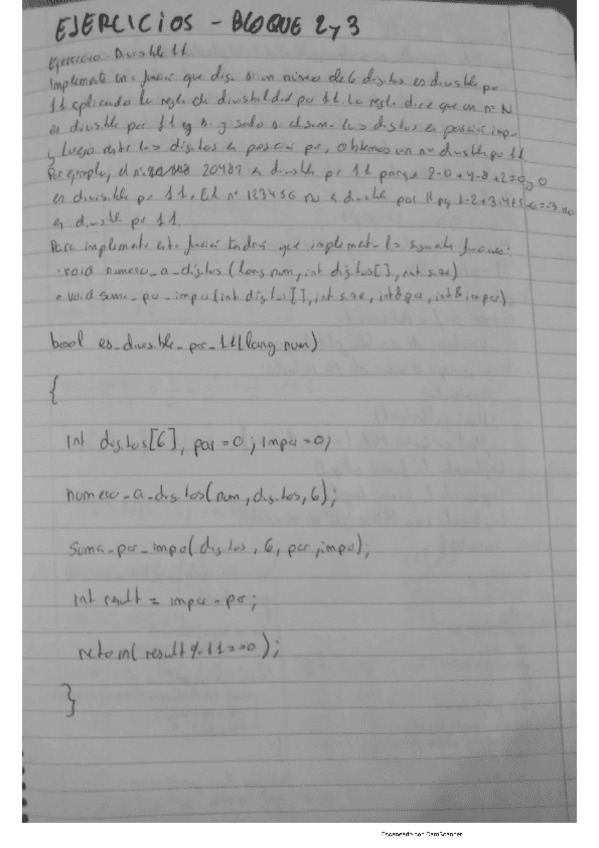 EJERCICIOS - BLOQUE 2 y 3
Ejercicio - Divisible 11.
Implemente una función que diga si un número de 6 dígitos es divisible por
11 aplicando la regla de divisibilidad por 11. La regla dice que un nº N
es divisible por 11 si y solo si al sumar los dígitos en posición impar
y luego restar los dígitos en posición par, obtenemos un nº divisible por 11.
Por ejemplo, el nº 20482 es divisible por 11 porque 2-0+4-8+2=0 y 0
es divisible por 11. El nº 123456 no es divisible por 11 pq 1-2+3-4+5-6=-3 no
es divisible por 11.
Para implementar esta función tendrá que implementar las siguientes funciones:
· void numero_a_digitos (long num, int digitos[], int size)
· void suma_par_impar(int digitos[], int size, int& par, int& impar)
bool es_divisible_por_11(long num)
{
int digitos[6], par=0; impar=0;
numero_a_digitos(num, digitos, 6);
suma_par_impar(digitos, 6, par, impar);
int result = impar - par;
return(result % 11==0);
}
Escaneado con CamScanner